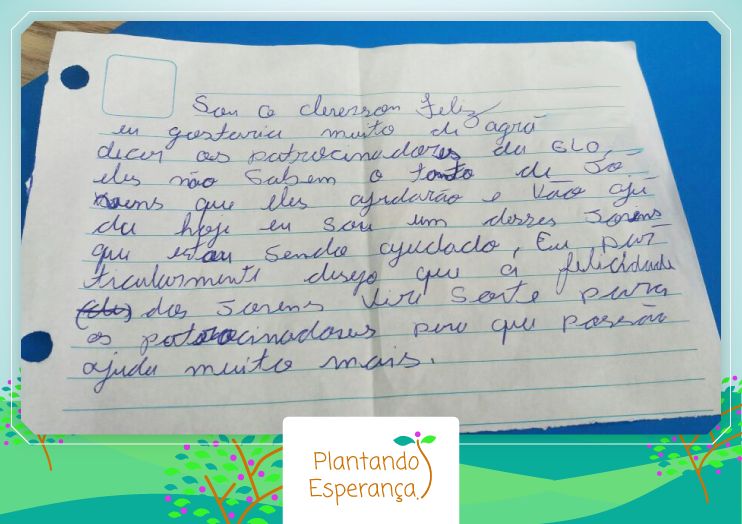 Sou o cleverson Feliz
eu gostaria muito di agra
decer os patrocinadores da GLO,
eles não Sabem o tanto di Jo
vens que eles ajudarão e Vão aju
da hoje eu sou um desses Jovens
que estou sendo ajudado, Eu, par
ticularmente desejo que a felicidade
dos Jovens Vire Sorte para
os patrocinadores para que possão
ajuda muito mais.
Plantando
Esperança.